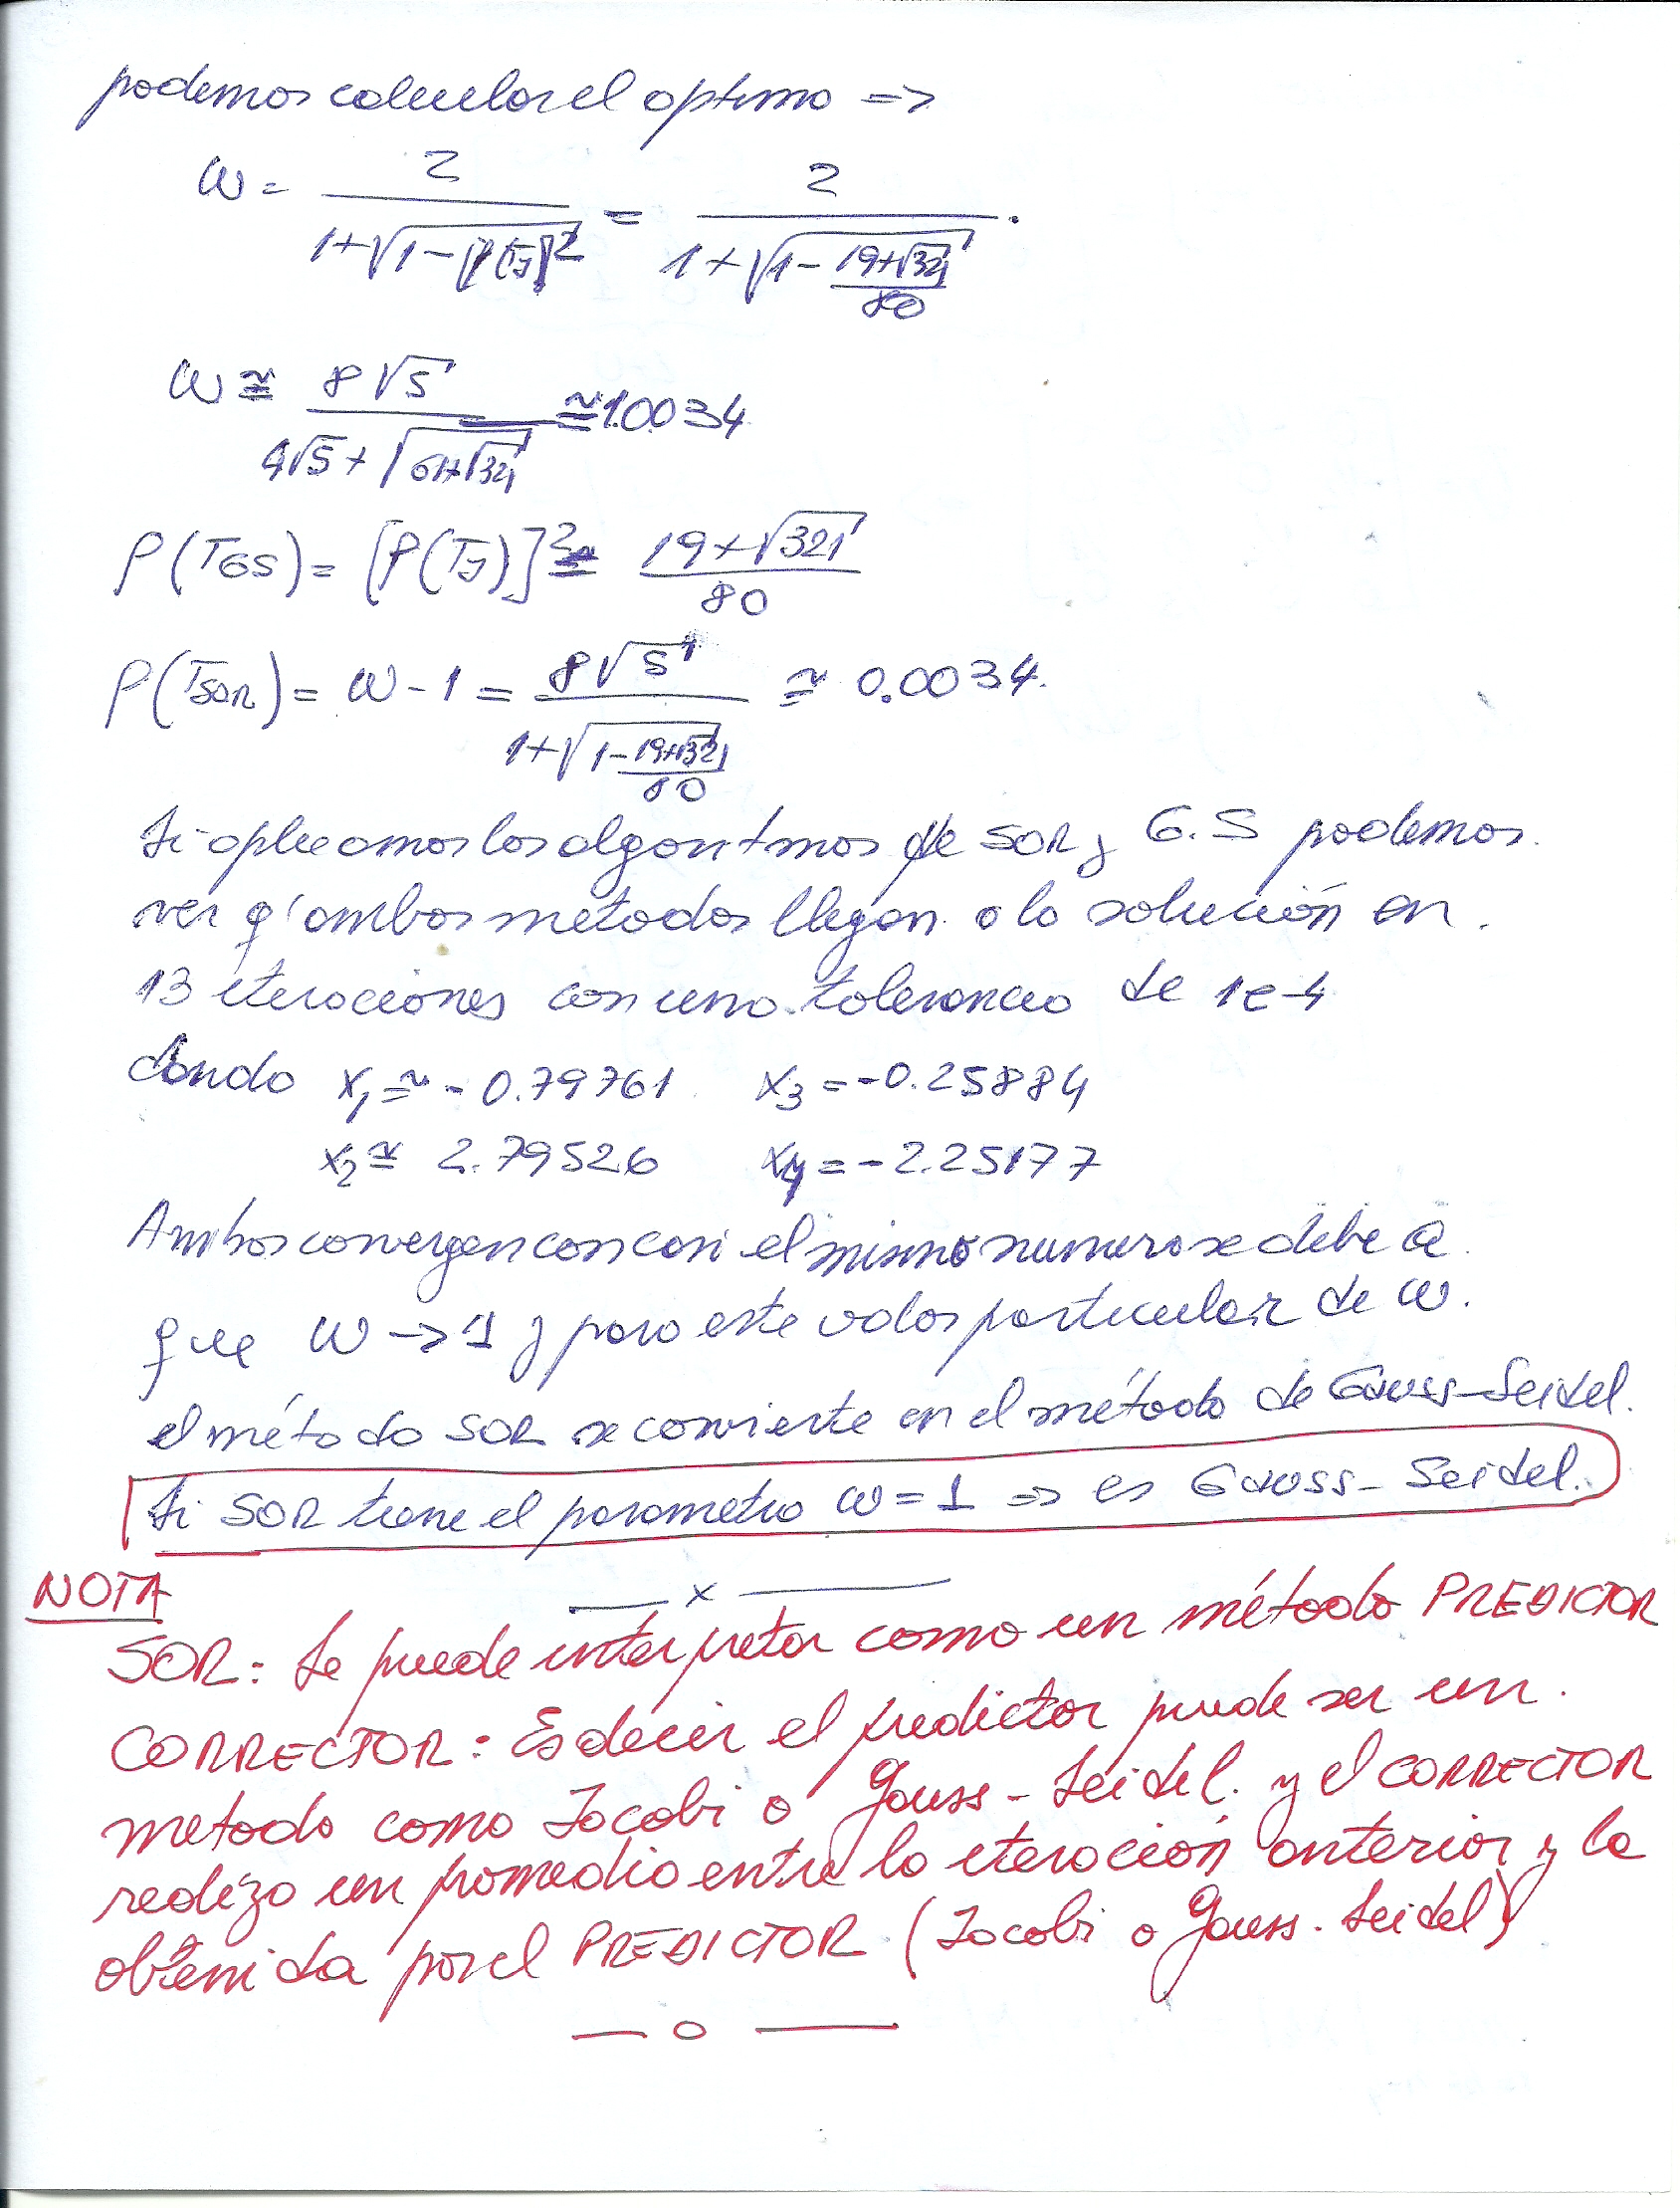 podemos calcular el optimo =>
w = 2 / (1+√(1-[ρ(Tj)]²)) = 2 / (1+√(1-(19+√321)/80)).
w ≅ 8√5 / (4√5+√(61+√321)) ≅ 1.0034
ρ(TGS) = [ρ(TJ)]² ≅ (19+√321)/80
ρ(TSOR) = w-1 = 8√5 / (1+√(1-(19+√321)/80)) ≅ 0.0034.
Si aplicamos los algoritmos de SOR y G.S podemos.
ver q' ambos métodos llegan a la solución en.
13 iteraciones con una tolerancia de 1e-4
dando x1 ≅ -0.79761 x3 = -0.25884
x2 ≅ 2.79526 x4 = -2.25177
Ambos convergen con casi el mismo numero se debe a
que w → 1 y para este valor particular de w.
el método SOR se convierte en el método de Gauss-Seidel.
Si SOR tiene el parametro w = 1 => es Gauss-Seidel.
x
NOTA
SOR: Se puede interpretar como un método PREDICTOR
CORRECTOR: Es decir el predictor puede ser un.
metodo como Jacobi o Gauss-Seidel. y el CORRECTOR
realizo un promedio entre la iteración anterior y la
obtenida por el PREDICTOR (Jacobi o Gauss-Seidel)
— o —